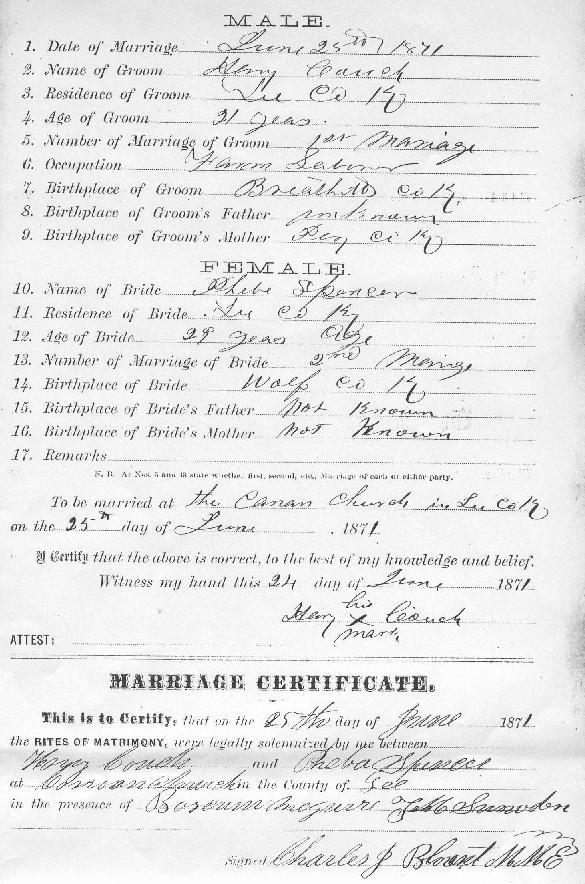 MALE.
1. Date of Marriage June 25th 1871
2. Name of Groom Henry Couch
3. Residence of Groom Lee Co Ky
4. Age of Groom 21 years.
5. Number of Marriage of Groom 1st Marriage
6. Occupation Farm Laborer
7. Birthplace of Groom Breathitt Co Ky
8. Birthplace of Groom's Father unknown
9. Birthplace of Groom's Mother Co Ky
FEMALE.
10. Name of Bride Phebe Spencer
11. Residence of Bride Lee Co Ky
12. Age of Bride 29 years Age
13. Number of Marriage of Bride 2nd Marriage
14. Birthplace of Bride Wolf Co Ky
15. Birthplace of Bride's Father Not Known
16. Birthplace of Bride's Mother Not Known
17. Remarks
N. B. At Nos. 5 and 13 state whether first, second, etc., Marriage of each or either party.
To be married at the Canan Church in Lee Co Ky
on the 25th day of June, 1871
I Certify that the above is correct, to the best of my knowledge and belief.
Witness my hand this 24 day of June 1871
his
Henry X Couch
mark
ATTEST:
MARRIAGE CERTIFICATE.
This is to Certify, that on the 25th day of June 1871
the RITES OF MATRIMONY, were legally solemnized by me between
Henry Couch and Pheba Spence
at Church in the County of Lee
in the presence of McGuire Snowden
Signed Charles J Blount M M E